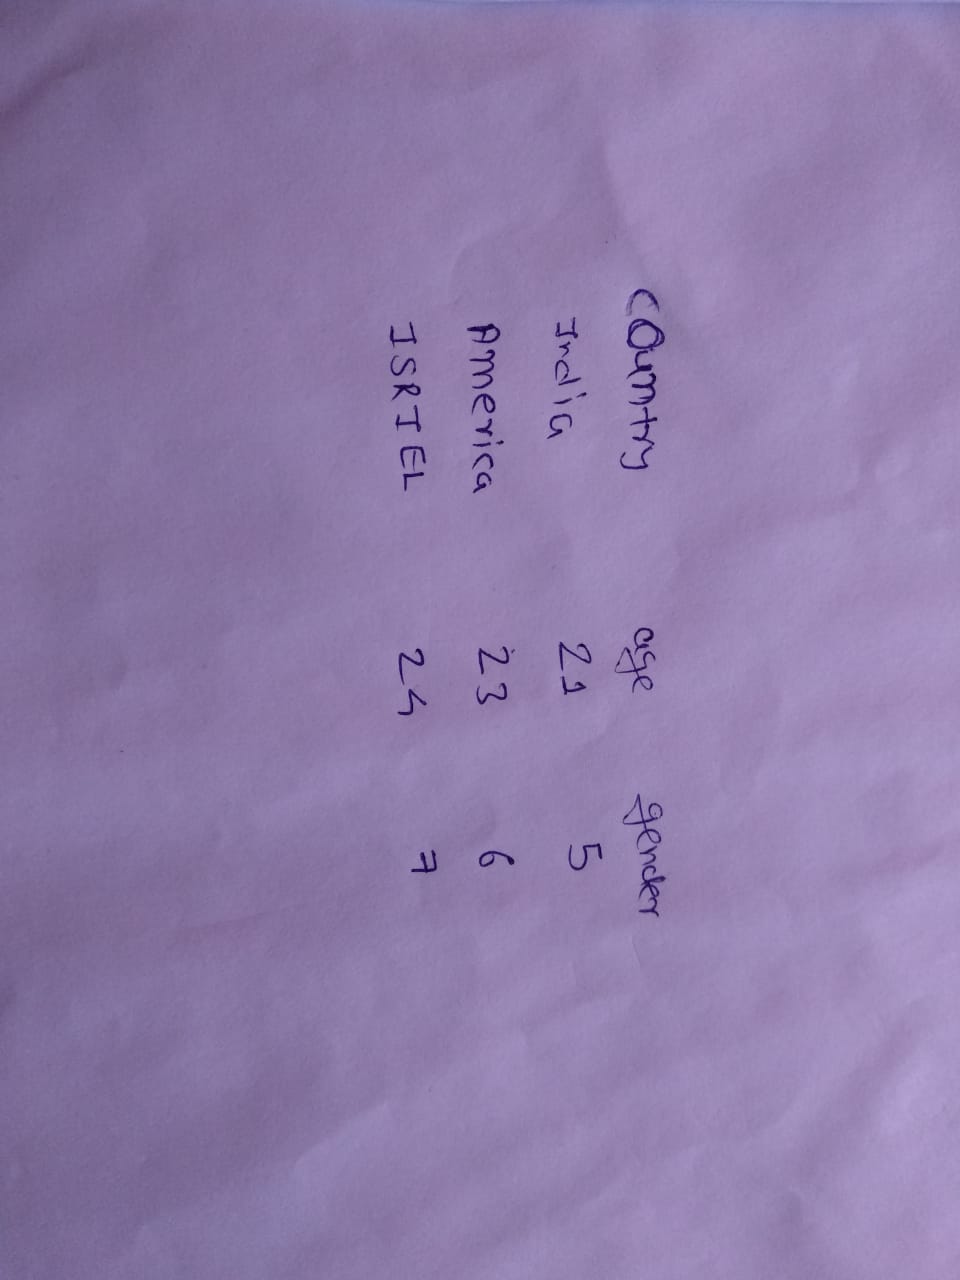 country age gender
India 21 5
America 23 6
ISRIEL 24 7